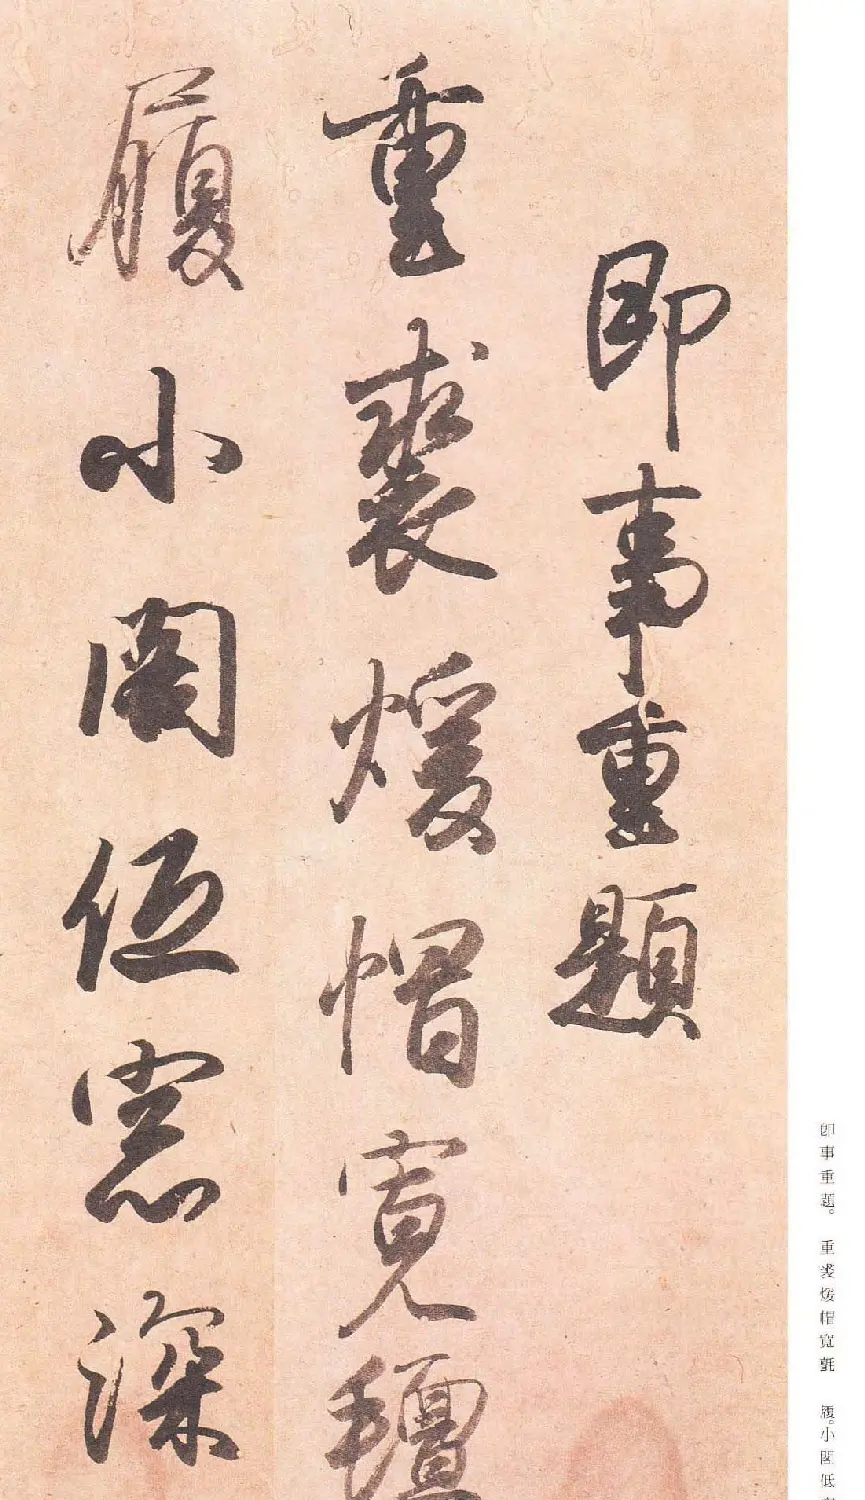 即事重題
重裘煖帽寬氊
履小閣低窓深
即事重題。 重裘煖帽寬氈 履。小閣低